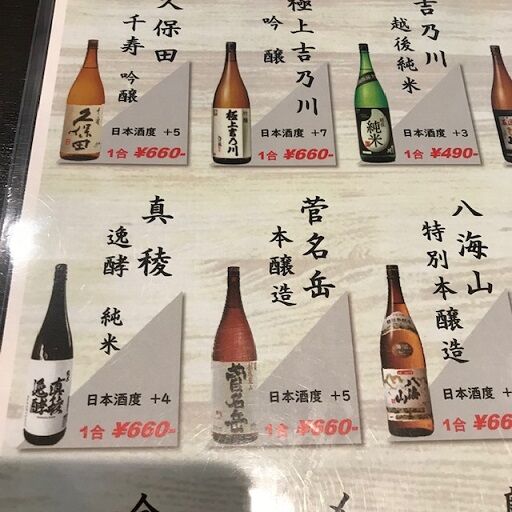 久保田
千寿 吟醸
久保田
日本酒度 +5
1合 ¥660-
極上吉乃川
吟醸
極上吉乃川
日本酒度 +7
1合 ¥660-
吉乃川
越後純米
純米
日本酒度 +3
1合 ¥490-
真稜
逸酵 純米
真稜
逸酵
日本酒度 +4
1合 ¥660-
菅名岳
本醸造
菅名岳
日本酒度 +5
1合 ¥660-
八海山
特別本醸造
八海山
日本酒度
1合 ¥660